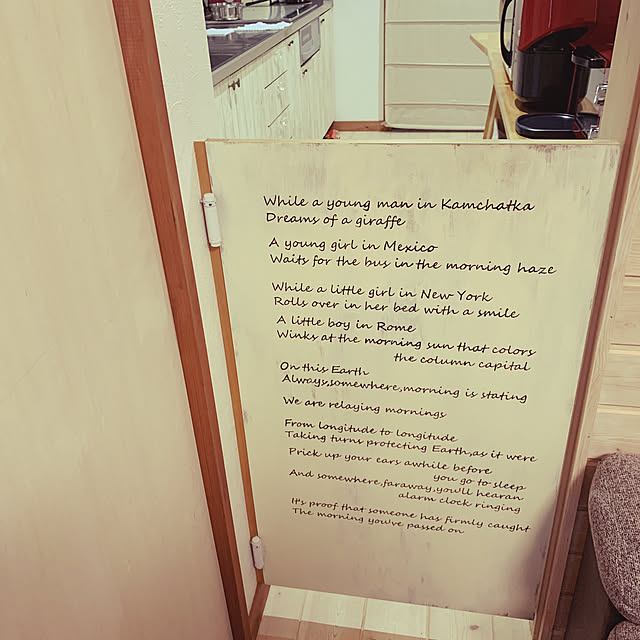 While a young man in Kamchatka
Dreams of a giraffe
A young girl in Mexico
Waits for the bus in the morning haze
While a little girl in New York
Rolls over in her bed with a smile
A little boy in Rome
Winks at the morning sun that colors
the column capital
On this Earth
Always,somewhere,morning is stating
We are relaying mornings
From longitude to longitude
Taking turns protecting Earth,as it were
Prick up your ears awhile before
you go to sleep
And somewhere,faraway,you'll hearan
alarm clock ringing
It's proof that someone has firmly caught
The morning you've passed on